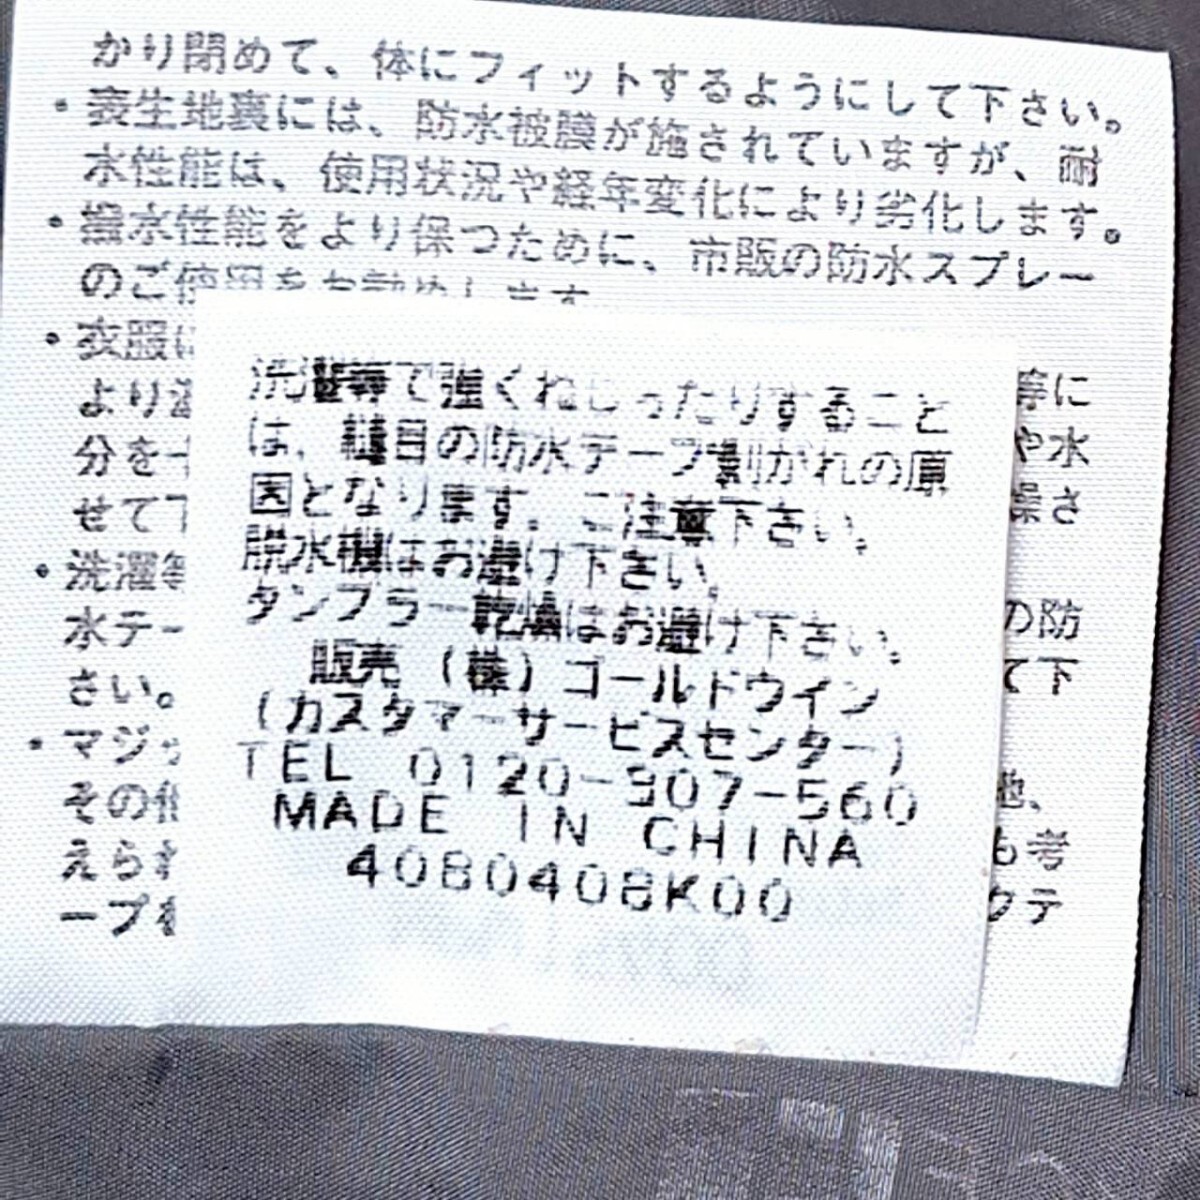 かり閉めて、体にフィットするようにして下さい。
・表生地裏には、防水被膜が施されていますが、耐
水性能は、使用状況や経年変化により劣化します。
・撥水性能をより保つために、市販の防水スプレー
のご使用をお勧めします
・衣服に
より
分を
せて下
・洗濯等
水テー
さい。
・マジッ
その他
えられ
ープを
等に
や水
燥さ
の防
て下
地、
も考
クテ
洗濯等で強くねじったりすること
は、縫目の防水テープ剝がれの原
因となります。ご注意下さい。
脱水機はお避け下さい。
タンブラー乾燥はお避け下さい。
販売 (株)ゴールドウイン
(カスタマーサービスセンター)
TEL 0120-907-560
MADE IN CHINA
4080408K00